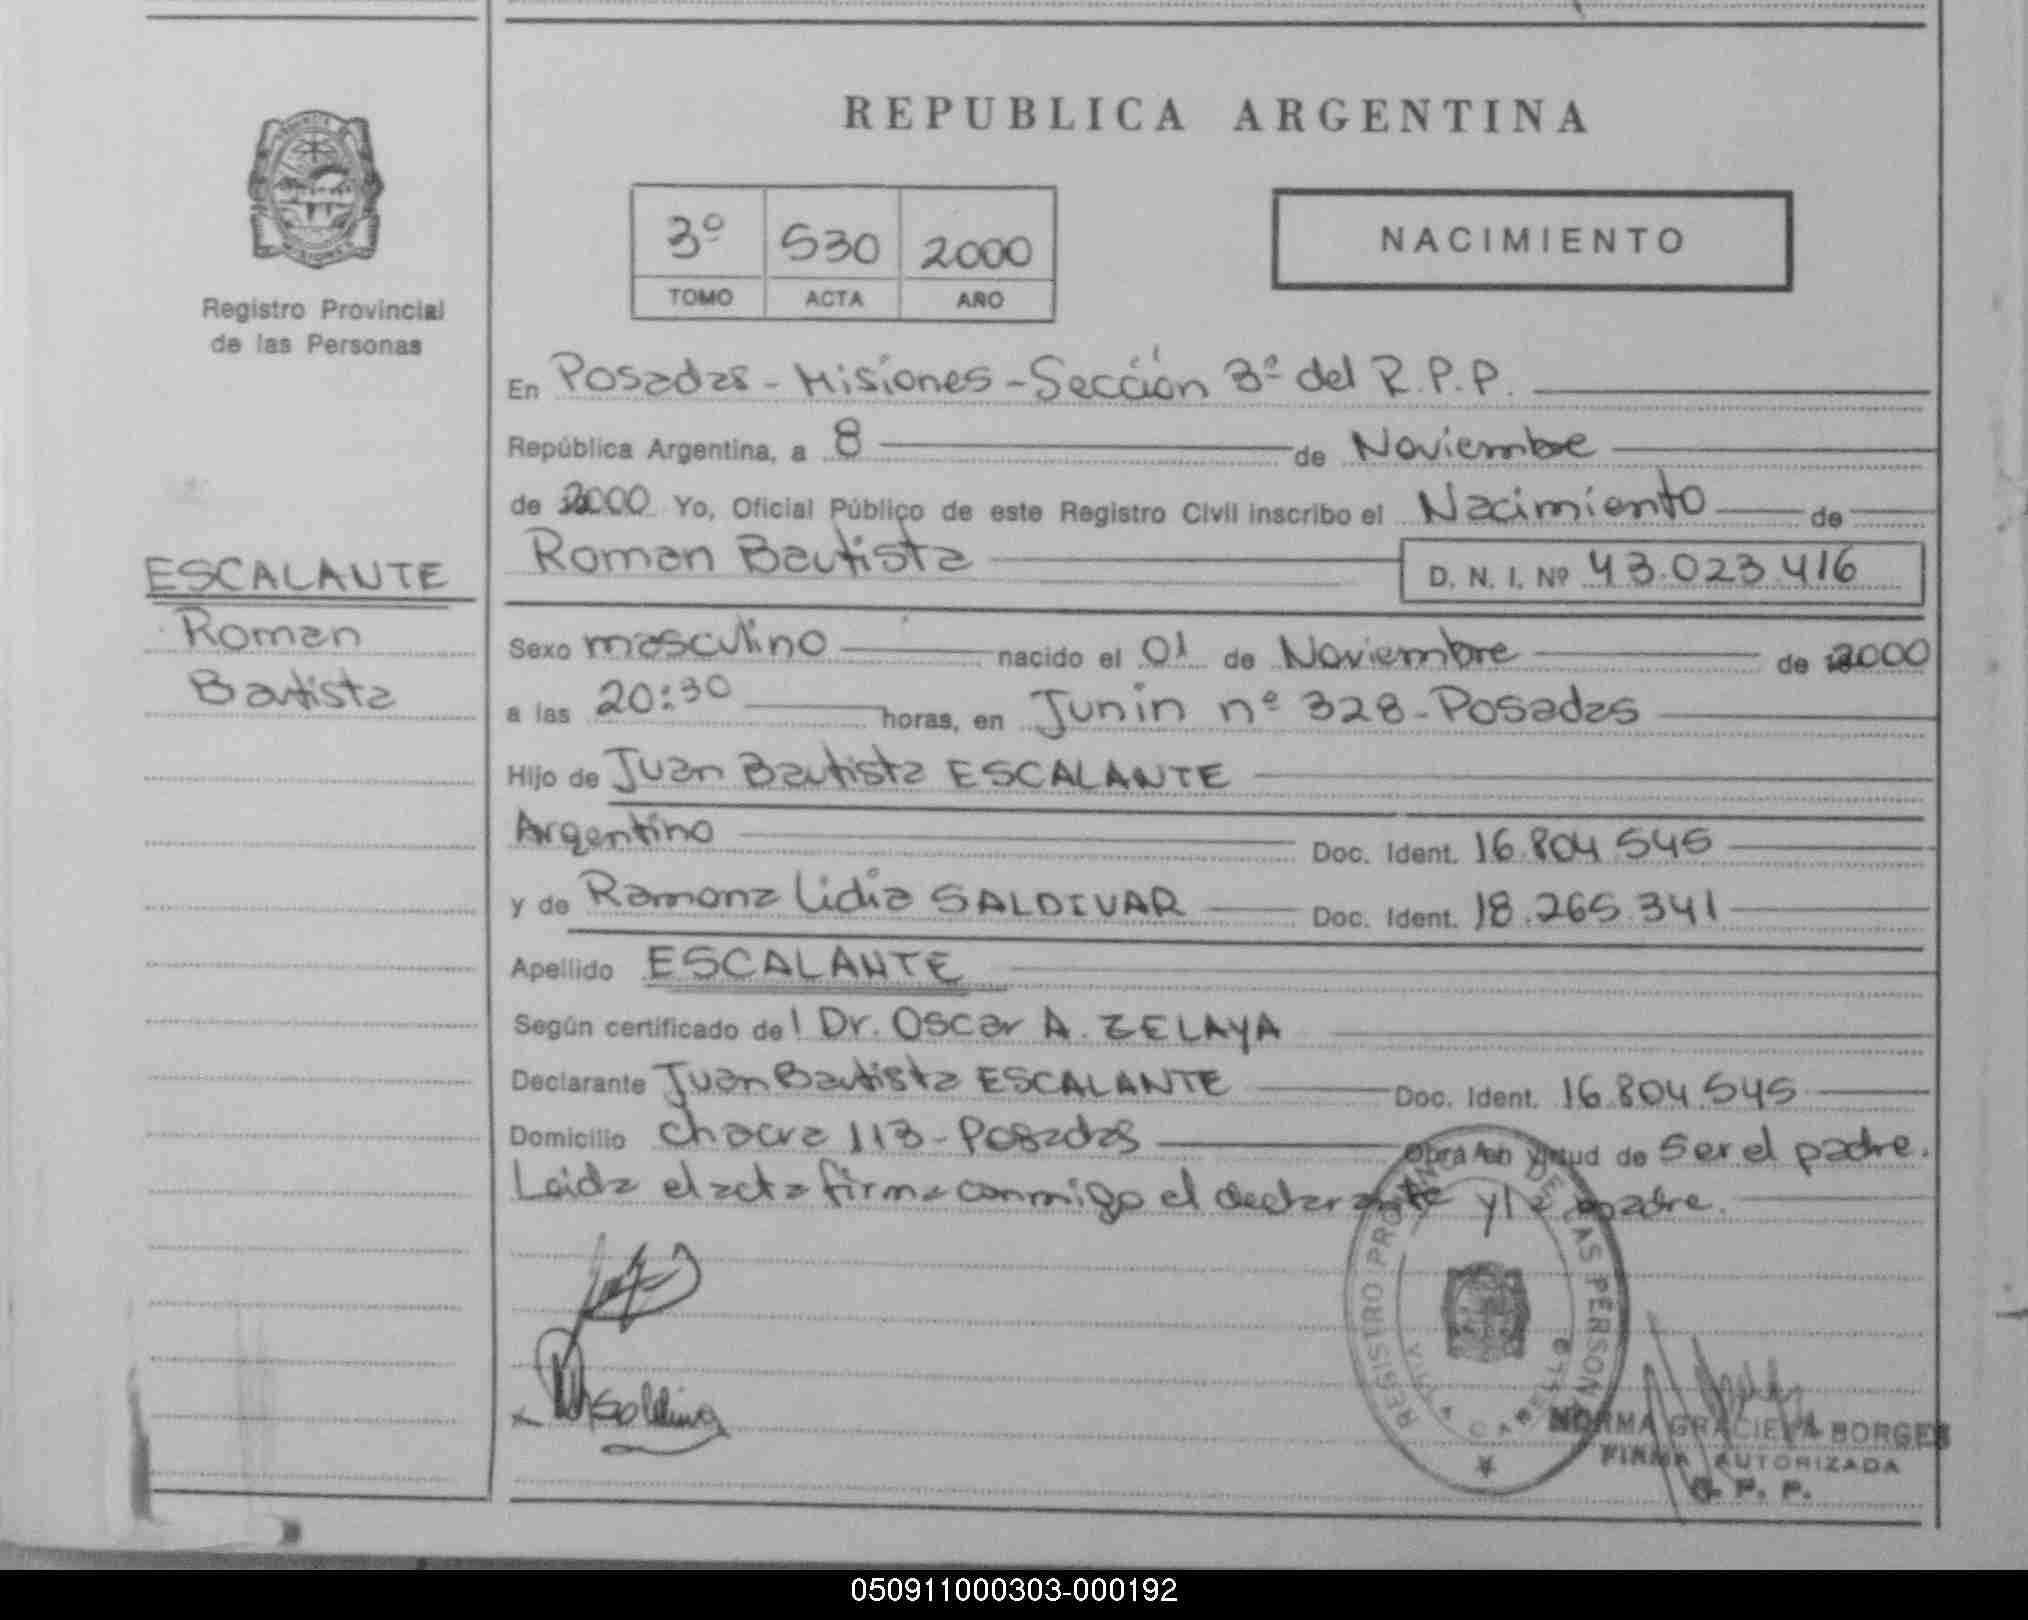 REPUBLICA ARGENTINA
3º 530 2000
TOMO ACTA AÑO
NACIMIENTO
Registro Provincial
de las Personas
ESCALANTE
Roman
Bautista
En Posadas - Misiones - Sección 3ª del R.P.P.
República Argentina, a 8 de Noviembre
de 2000 Yo, Oficial Público de este Registro Civil inscribo el Nacimiento de
Roman Bautista D. N. I. Nº 43.023.416
Sexo masculino nacido el 01 de Noviembre de 2000
a las 20:30 horas, en Junin nº 328 - Posadas
Hijo de Juan Bautista ESCALANTE
Argentino Doc. Ident. 16.804.545
y de Ramona Lidia SALDIVAR Doc. Ident. 18.265.341
Apellido ESCALANTE
Según certificado de l Dr. Oscar A. ZELAYA
Declarante Juan Bautista ESCALANTE Doc. Ident. 16.804.545
Domicilio Chacra 113 - Posadas Obra en virtud de ser el padre.
Leida el acta firma conmigo el declarante y la madre.
REGISTRO PROVINCIAL DE LAS PERSONAS
VILLA CABELLO
NORMA GRACIELA BORGES
FIRMA AUTORIZADA
R. P. P.
050911000303-000192